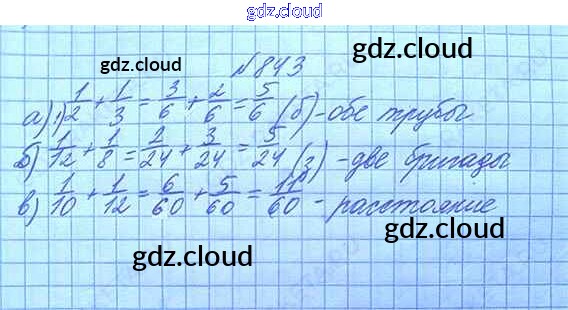 gdz.cloud
gdz.cloud
№ 843
gdz.cloud
а) 1) 1/2 + 1/3 = 3/6 + 2/6 = 5/6 (б) - обе трубы
б) 1/12 + 1/8 = 2/24 + 3/24 = 5/24 (з) - две бригады
в) 1/10 + 1/12 = 6/60 + 5/60 = 11/60 - расстояние
gdz.cloud
gdz.cloud
gdz.cloud